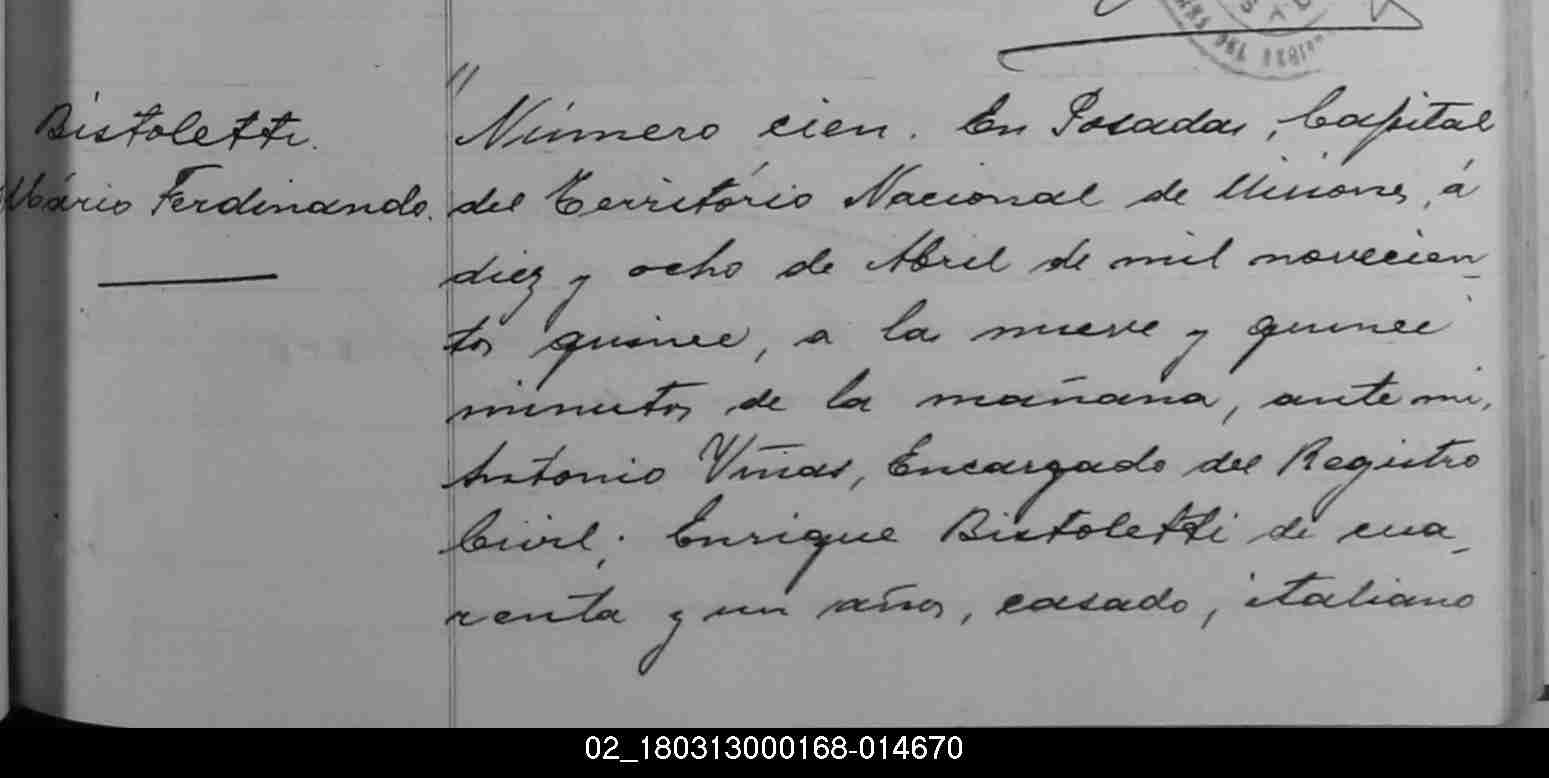 Bistoletti.
Mário Ferdinando.
Número cien. En Posadas, Capital
del Território Nacional de Misiones, á
diez y ocho de Abril de mil novecien_
tos quince, a las nueve y quince
minutos de la mañana, ante mi,
Antonio Viñas, Encargado del Registro
Civil; Enrique Bistoletti de cua_
renta y un años, casado, italiano
02_180313000168-014670